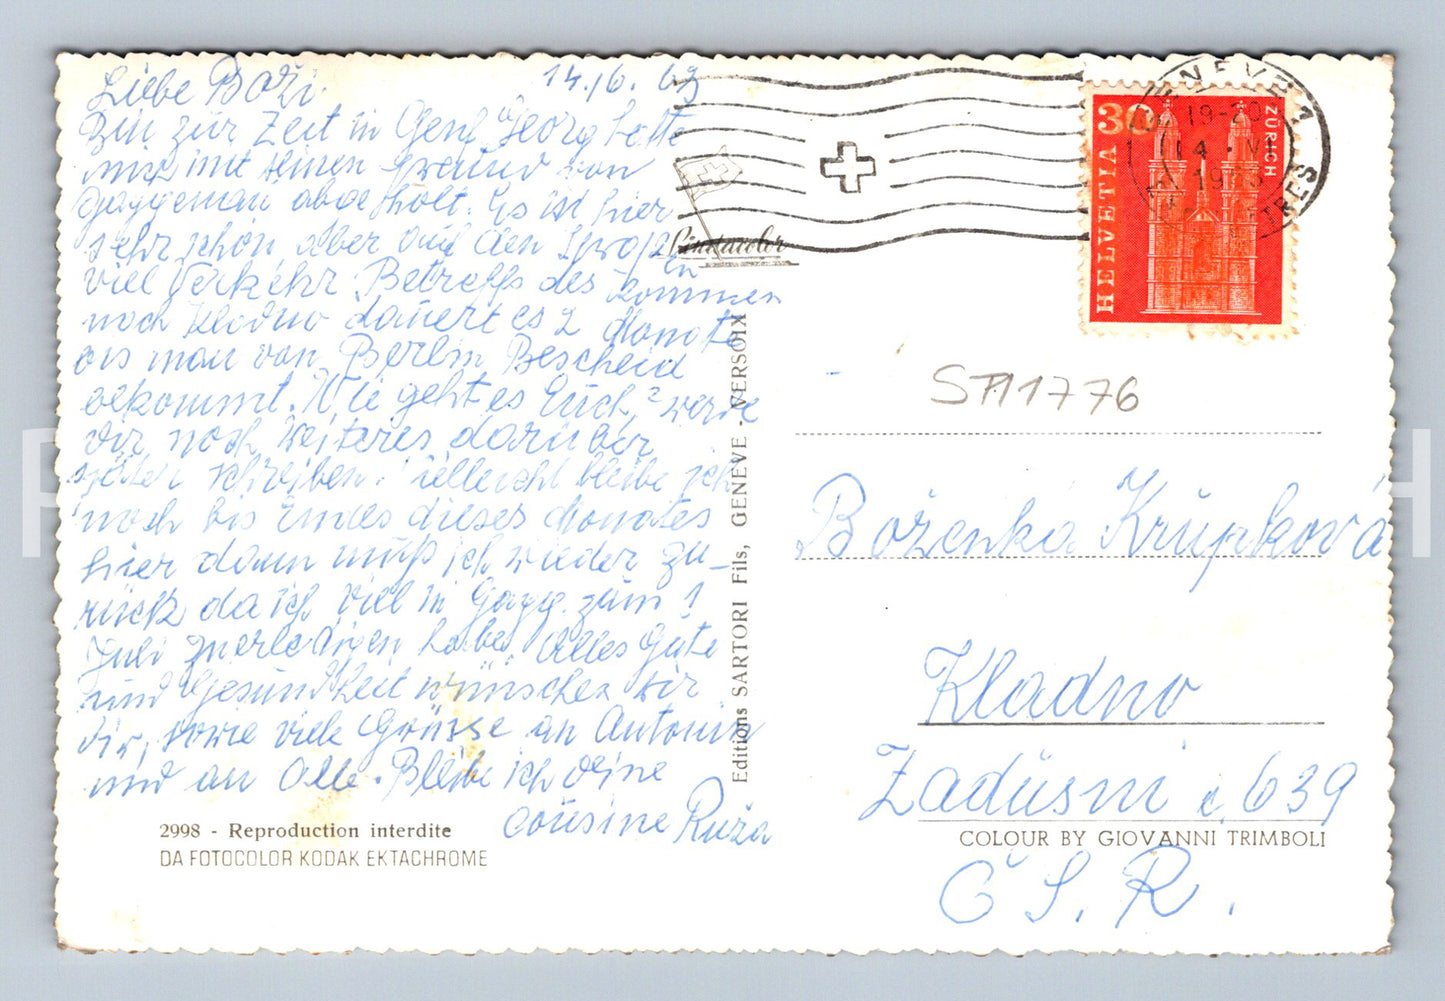 14./6. 63
Liebe Boži.
Bin zur Zeit in Genf Georg hatte
mich mit seinen Freund von
Gaggenau abgeholt. Es ist hier
sehr schön, aber auf den
viel Verkehr Betreffs des kommen
nach Kladno dauert es 2 Monate
bis man von Berlin Bescheid
bekommt. Wie geht es Euch,? werde
dir noch weiteres darüber
später schreiben. Vielleicht bleibe ich
noch bis Endes dieses Monates
hier dann muß ich wieder zu-
rück da ich viel in Gagg. zum 1
Juli zuerledigen habe. Alles Gute
und Gesundheit wünschen wir
dir, sowie viele Grüsse an Antonin
und an Alle. Bleibe ich deine
coúsine Ruža
2998 - Reproduction interdite
DA FOTOCOLOR KODAK EKTACHROME
Editions SARTORI Fils, GENÈVE - VERSOIX
GENEVE 1
19-20
14.VI
LETTRES
HELVETIA
30
ZÜRICH
ST11776
Boženka Krupková
Kladno
Zádušní č. 639
COLOUR BY GIOVANNI TRIMBOLI
Č. S. R.